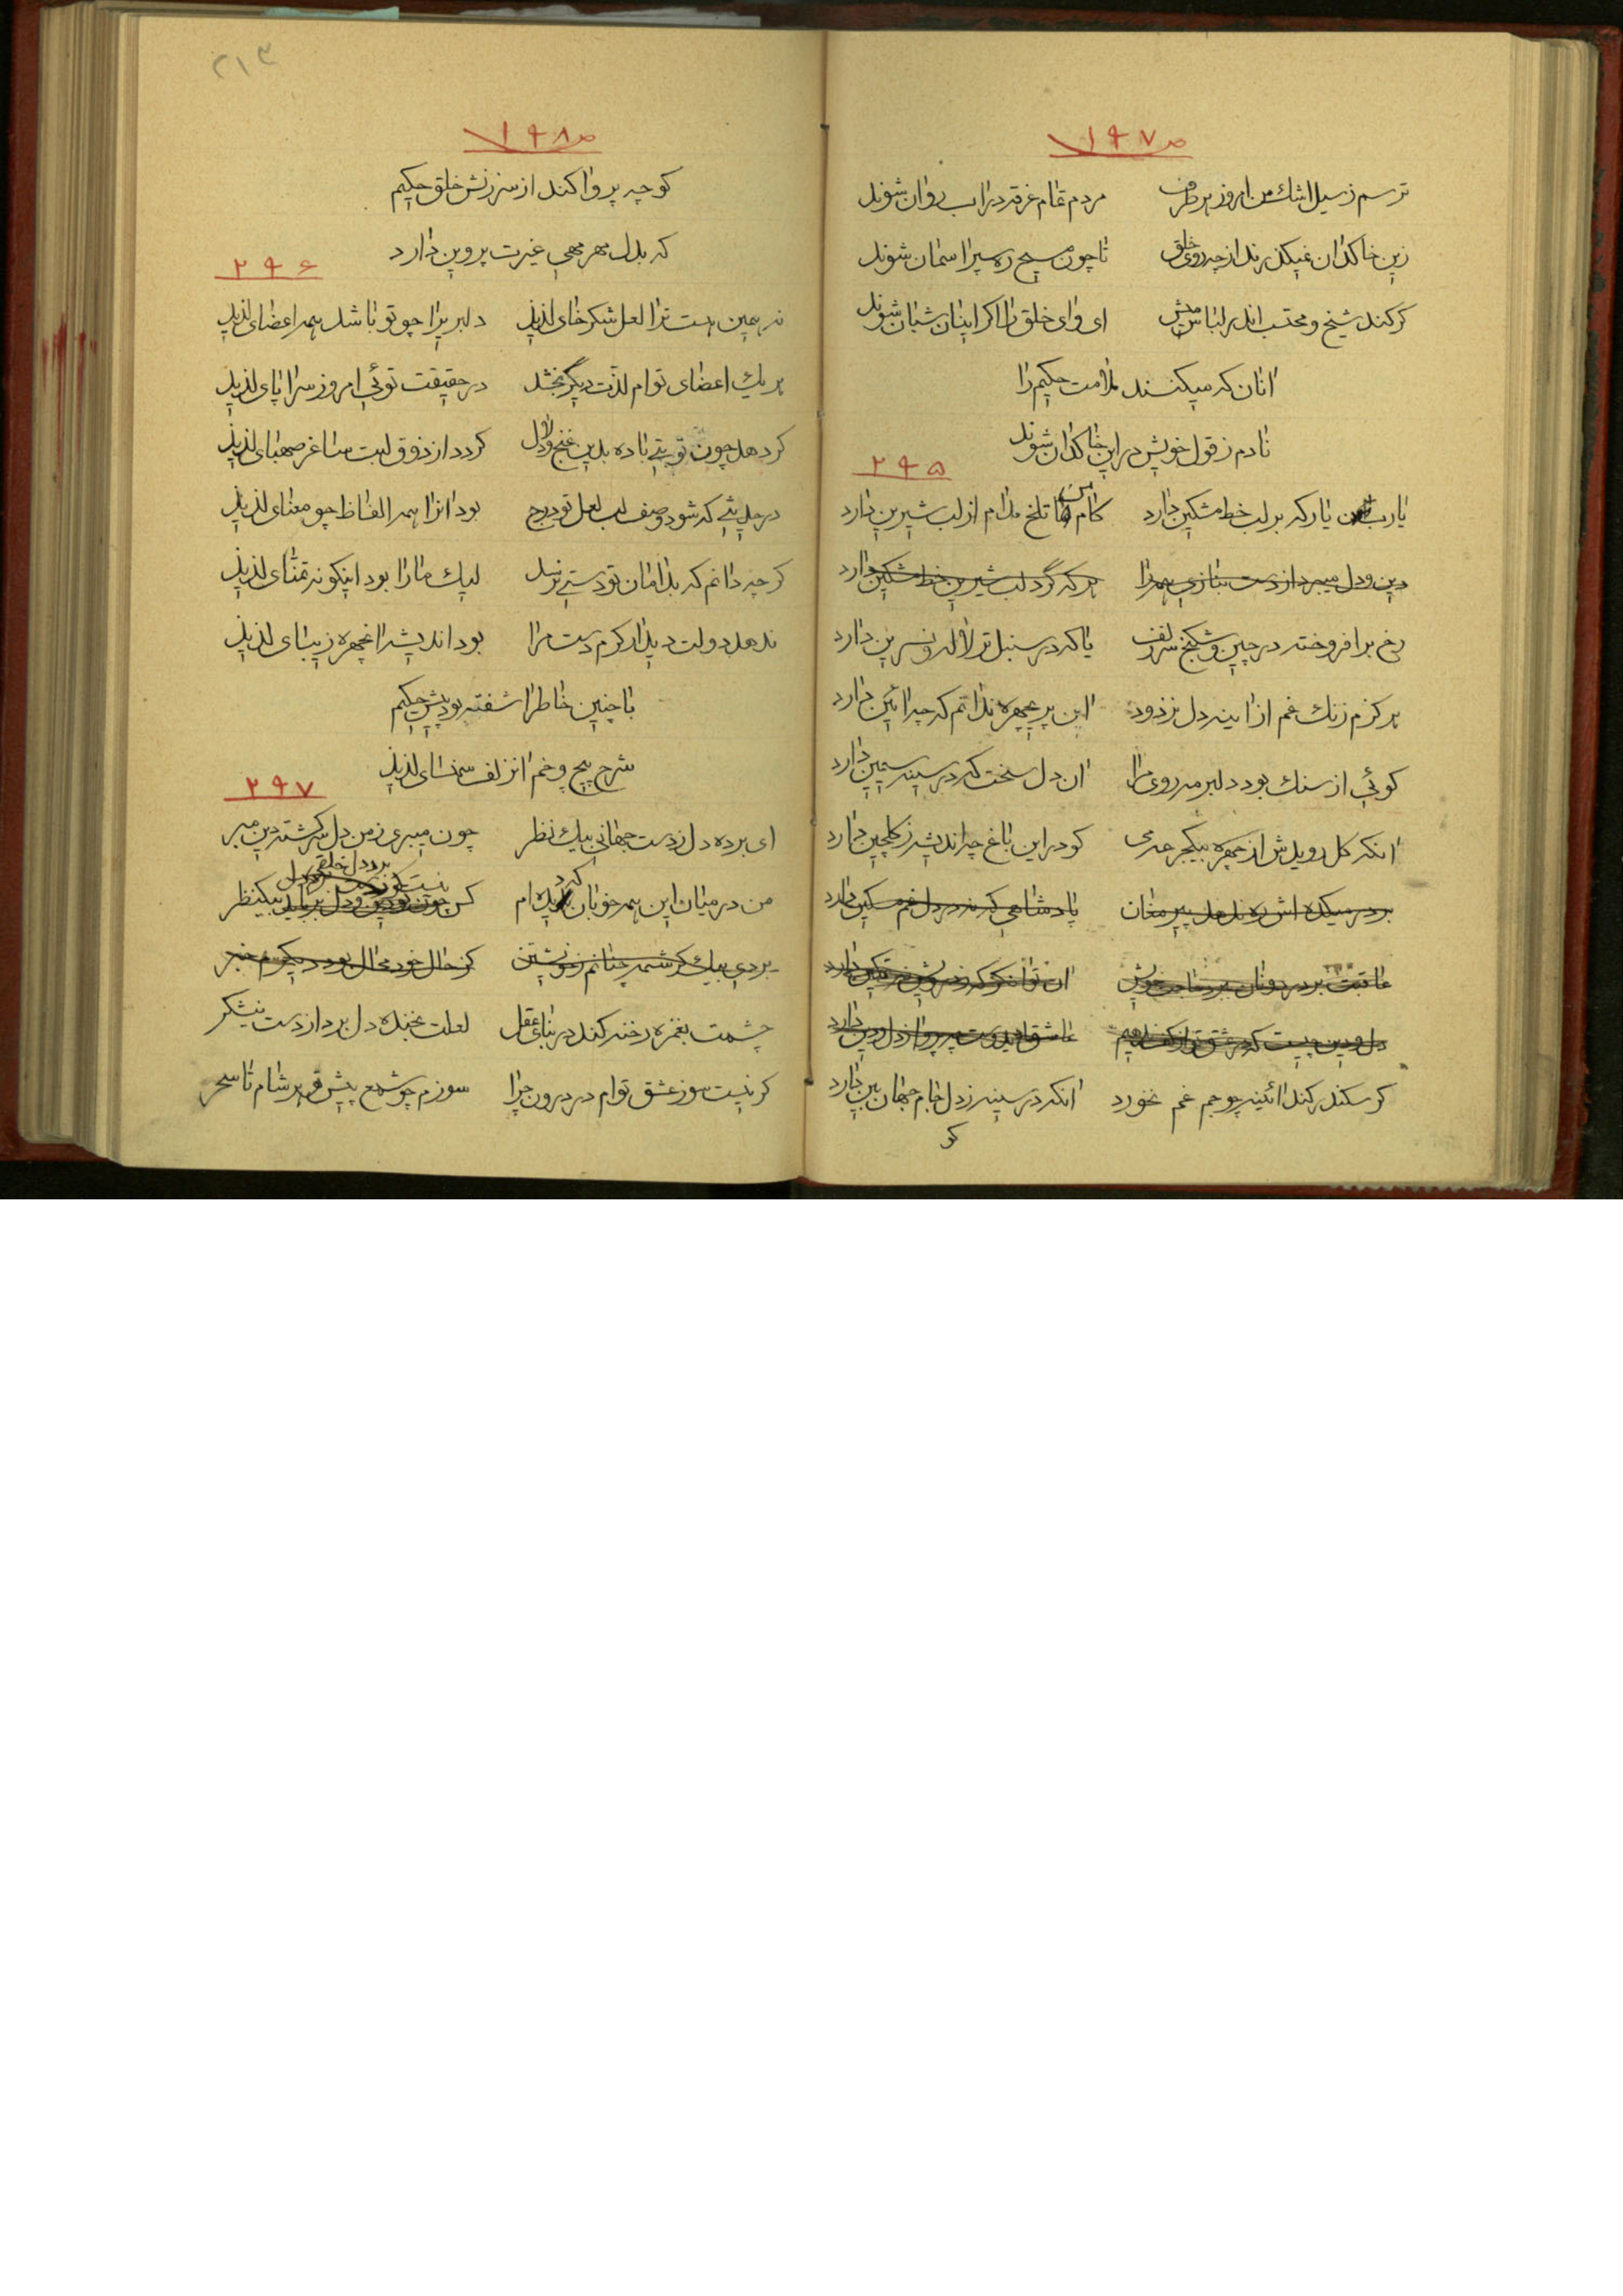 ص ۱۹۷
ترسم ز سیل اشك من امروز هر طرف مردم تمام غرقه در اب روان شوند
زین خاکدان نمیکذرند از چه روی خلق تا چون مسیح ره سپر اسمان شوند
کرکند شیخ و محتسب اندر لباس میش ای وای خلق را اکر اینان شبان شوند
انان که میکنند ملامت حکیم را
نادم ز قول خویش در این خاکدان شوند
۲۹۵
یارب ان یار که بر لب خط مشکین دارد کام من تلخ مدام از لب شیرین دارد
دین و دل میبرد از دست بتازی همه را هر که گرد لب شیرین خط مشکین دارد
رخ بر افروخته در چین و شکنج سر زلف یا که در سنبل تر لاله و نسرین دارد
هرکزم زنك غم از اینه دل نزدود این پریچهره ندانم که چه ائین دارد
کوئی از سنك بود دلبر مه روی مرا ان دل سخت که در سینه سیمین دارد
انکه کل رویدش از چهره بیکجرعه می کو در این باغ چه اندیشه ز کلچین دارد
بر در میکده اش ره ندهد پیر مغان پادشاهی که نه در دل غم مسکین دارد
عاقبت بر در دونان برد حاجت خویش ان توانکر که ز درویش
دل و دین چیست که در عشق تو از کف ندهیم عاشق ای دوست چه پروا ز دل و دین دارد
کر سکندر کند ائینه چو جم غم نخورد انکه در سینه ز دل جام جهان بین دارد
کو
۲۱۳
ص ۱۹۸
کو چه پروا کند از سرزنش خلق حکیم
که بدل مهر مهی غیرت پروین دارد
۲۹۶
نه همین هست ترا لعل شکرخای لذیذ دلبریرا چو تو باشد همه اعضای لذیذ
هریك اعضای توام لذت دیکر بخشد در حقیقت توئی امروز سراپای لذیذ
کر دهد چون تو بتی باده بدین غنج و دلال کردد از ذوق لبت ساغر صهبای لذیذ
در حدیثی که شود وصف لب لعل تو درج بود انرا همه الفاظ چو معنای لذیذ
کرچه دانم که بدامان تو دستی نرسد لیك ما را بود اینکونه تمنای لذیذ
ندهد دولت دیدار کرم دست مرا بود اندیشه انچهره زیبای لذیذ
با چنین خاطر اشفته بود پیش حکیم
شرح پیچ و خم انزلف سمنسای لذیذ
۲۹۷
ای برده دل ز دست جهانی بیك نظر چون میبری ز من دل سرکشته دین مبر
من در میان این همه خوبان ندیده ام کس چون تو دین و دل برباید بیکنظر
بردی بیك کرشمه چنانم ز خویشتن کز حال خود محال بود دیکرم خبر
چشمت بغمزه رخنه کند در بنای عقل لعلت بخنده دل برد از دست نیشکر
کر نیست سوز عشق توام در درون چرا سوزم چو شمع پیش تو هر شام تا سحر